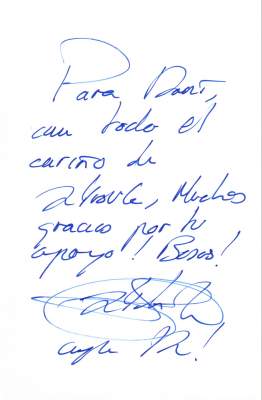 Para Dani,
con todo el
cariño de
, Muchas
gracias por tu
apoyo! Besos!